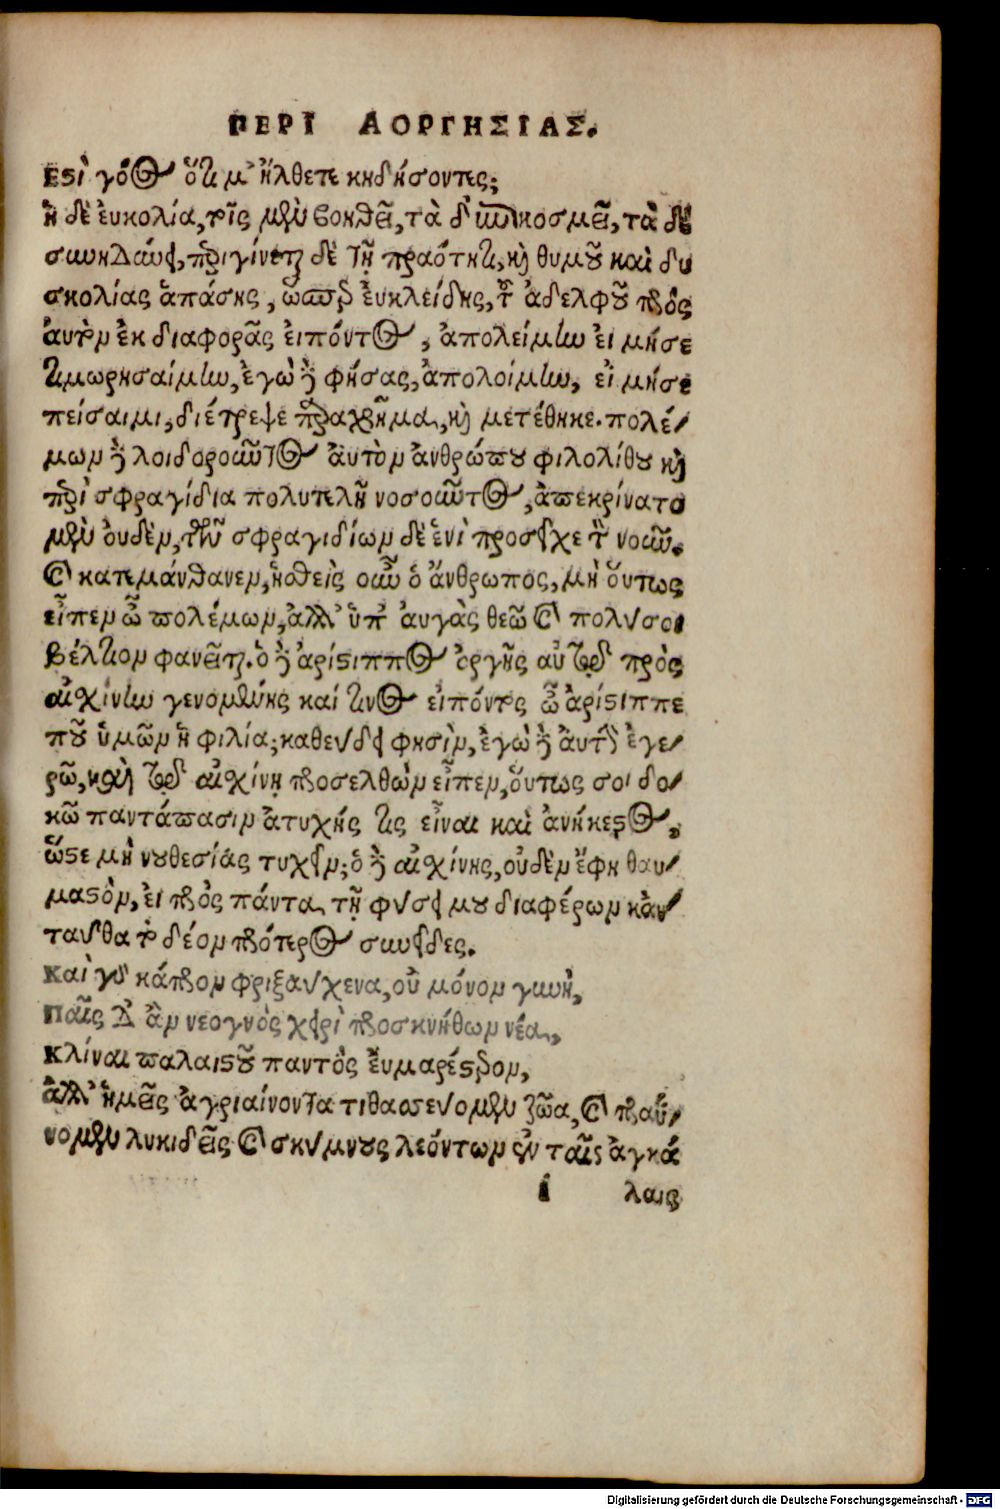 ΠΕΡΙ ΑΟΡΓΗΣΙΑΣ.
Εστὶ γόος ὅτι μ' ἤλθετε κηδήσοντες;
ἡ δὲ ἐυκολία, τοῖς μὲν βοηθεῖ, τὰ δ' ἐπικοσμεῖ, τὰ δὲ
συνηδύνει, περιγίνεται δὲ τῇ πραότητι, καὶ θυμοῦ καὶ δυ
σκολίας ἁπάσης, ὥσπερ ἐυκλείδης, τοῦ ἀδελφοῦ πρὸς
ἀυτὸν ἐκ διαφορᾶς ἐιπόντος, ἀπολείμην ἐι μήσε
τιμωρησαίμην, ἐγὼ δὲ φήσας, ἀπολοίμην, εἰ μήσε
πείσαιμι, διέτρεψε παραχρῆμα, καὶ μετέθηκε. πολέ/
μων δὲ λοιδοροῦντος ἀυτὸν ἀνθρώπου φιλολίθου καὶ
περὶ σφραγίδια πολυτελῆ νοσοῦντος, ἀπεκρίνατο
μὲν ὀυδὲν, τῶν σφραγιδίων δὲ ἑνὶ προσεῖχε τὸν νοῦν.
καὶ κατεμάνθανεν, ἡσθεὶς οὖν ὁ ἄνθρωπος, μὴ ὅυτως
εἶπεν ὦ πολέμων, ἀλλ' ὑπ' ἀυγὰς θεῶ καὶ πολύ σοι
βέλτιον φανεῖται. ὁ δὲ ἀρίστιππος ὀργῆς αὐτῷ πρὸς
αἰχίνην γενομένης καί τινος εἰπόντος ὦ ἀρίστιππε
ποῦ ὑμῶν ἡ φιλία; καθεύδει φησὶν, ἐγὼ δὲ ἀυτὴν ἐγε/
ρῶ, καὶ τῷ αἰχίνῃ προσελθὼν εἶπεν, ὅυτως σοι δο/
κῶ παντάπασιν ἀτυχής τις εἶναι καὶ ἀνήκεστος,
ὥστε μὴ νουθεσίας τυχεῖν; ὁ δὲ αἰχίνης, οὐδὲν ἔφη θαυ/
μαστὸν, ἐι πρὸς πάντα τῇ φύσει μου διαφέρων κἀν/
ταῦθα τὸ δέον πρότερος συνεῖδες.
Καὶ γὰρ κάπρον φριξαύχενα, οὐ μόνον γυνὴ,
Παῖς δ' ἂν νεογνὸς χειρὶ προσκνήθων νέα,
Κλίναι παλαιστοῦ παντὸς ἐυμαρέστερον,
ἀλλ' ἡμεῖς ἀγριαίνοντα τιθασεύομεν ζῶα, καὶ πραΰ/
νομεν λυκιδεῖς καὶ σκύμνους λεόντων ἐν ταῖς ἀγκά
i λαις
Digitalisierung gefördert durch die Deutsche Forschungsgemeinschaft - DFG